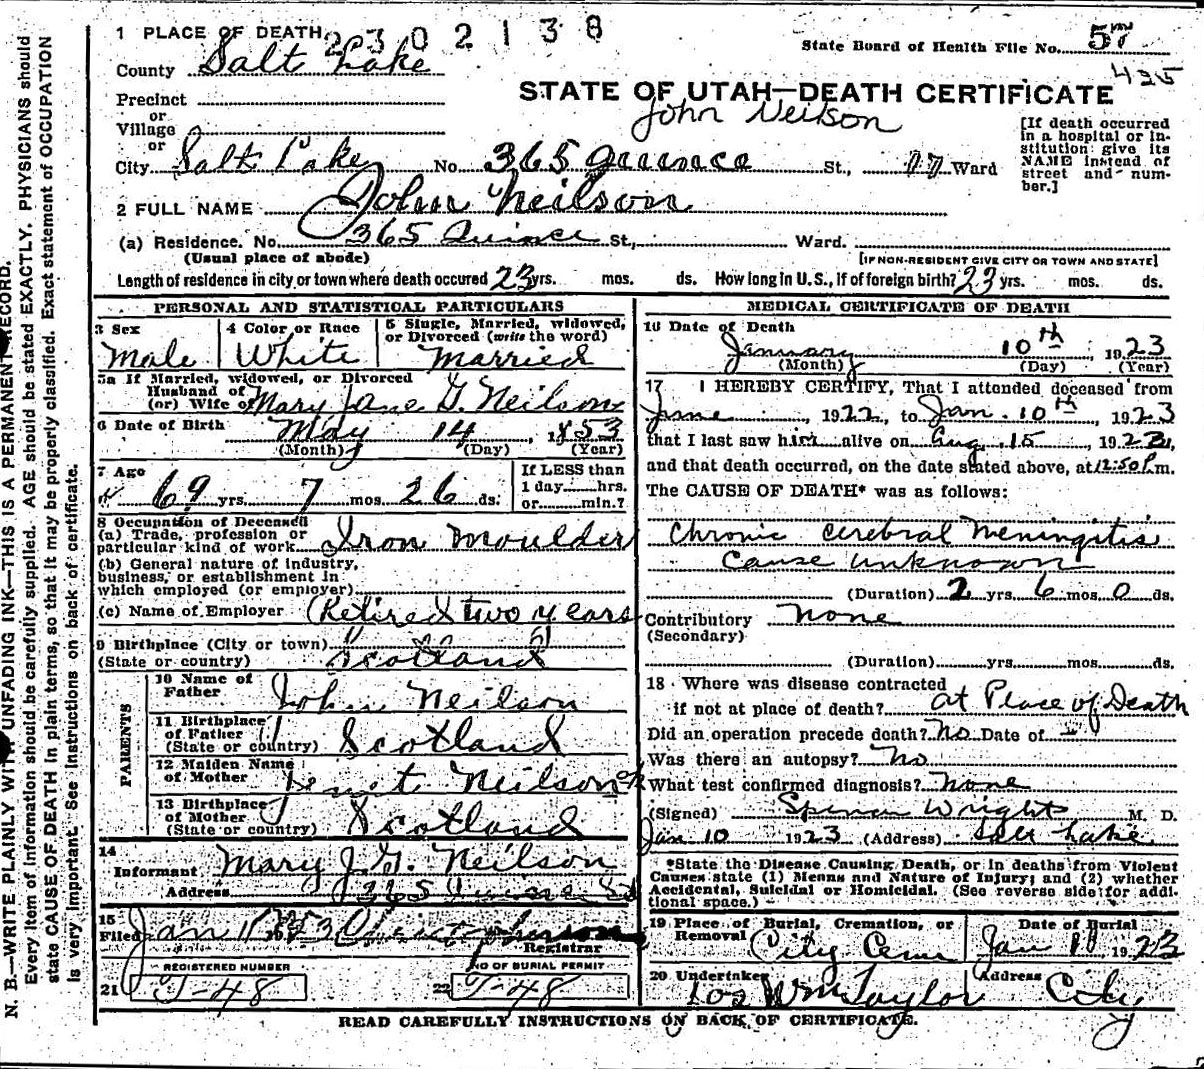 1 PLACE OF DEATH 2302138
State Board of Health File No. 57
County Salt Lake
425
STATE OF UTAH—DEATH CERTIFICATE
Precinct
or
Village
or
John Neilson
City Salt Lake No. 365 Quince St., Ward
[If death occurred
in a hospital or in-
stitution give its
NAME instead of
street and num-
ber.]
2 FULL NAME John Neilson
(a) Residence. No. 365 Quince St., Ward.
(Usual place of abode)
[IF NON-RESIDENT GIVE CITY OR TOWN AND STATE]
Length of residence in city or town where death occured 23 yrs. mos. ds. How long in U.S., if of foreign birth? 23 yrs. mos. ds.
PERSONAL AND STATISTICAL PARTICULARS
3 Sex
Male
4 Color or Race
White
5 Single, Married, widowed,
or Divorced (write the word)
Married
5a If Married, widowed, or Divorced
Husband of
(or) Wife of Mary Jane G. Neilson
6 Date of Birth May 14, 1853
(Month) (Day) (Year)
7 Age
69 yrs. 7 mos. 26 ds.
If LESS than
1 day hrs.
or min.?
8 Occupation of Deceased
(a) Trade, profession or
particular kind of work Iron Moulder
(b) General nature of industry,
business, or establishment in
which employed (or employer)
(c) Name of Employer (Retired two years
9 Birthplace (City or town)
(State or country) Scotland
PARENTS
10 Name of
Father John Neilson
11 Birthplace
of Father
(State or country) Scotland
12 Maiden Name
of Mother Neilson
13 Birthplace
of Mother
(State or country) Scotland
14
Informant Mary J. G. Neilson
Address 365 Quince St
15
Filed Jan 23
Registrar
REGISTERED NUMBER
21 J-48
NO OF BURIAL PERMIT
22 J-48
MEDICAL CERTIFICATE OF DEATH
16 Date of Death
January 10th, 1923
(Month) (Day) (Year)
17 I HEREBY CERTIFY, That I attended deceased from
June, 1922, to Jan. 10th, 1923
that I last saw him alive on Aug. 15, 192
and that death occurred, on the date stated above, at 12:50 P.m.
The CAUSE OF DEATH* was as follows:
Chronic cerebral Meningitis
Cause unknown
(Duration) 2 yrs. 6 mos. 0 ds.
Contributory None
(Secondary)
(Duration) yrs. mos. ds.
18 Where was disease contracted
if not at place of death? at Place of Death
Did an operation precede death? No Date of
Was there an autopsy? No
What test confirmed diagnosis? None
(Signed) Wright M. D.
Jan 10 1923 (Address) Salt Lake
*State the Disease Causing Death, or in deaths from Violent
Causes state (1) Menns and Nature of Injury; and (2) whether
Accidental, Suicidal or Homicidal. (See reverse side for addi-
tional space.)
19 Place of Burial, Cremation, or
Removal City Cem
Date of Burial
Jan 11 1923
20 Undertaker
Jos Wm Taylor
Address
City
READ CAREFULLY INSTRUCTIONS ON BACK OF CERTIFICATE.
N. B.—WRITE PLAINLY WITH UNFADING INK—THIS IS A PERMANENT RECORD.
Every item of information should be carefully supplied. AGE should be stated EXACTLY. PHYSICIANS should
state CAUSE OF DEATH in plain terms, so that it may be properly classified. Exact statement of OCCUPATION
is very important. See instructions on back of certificate.